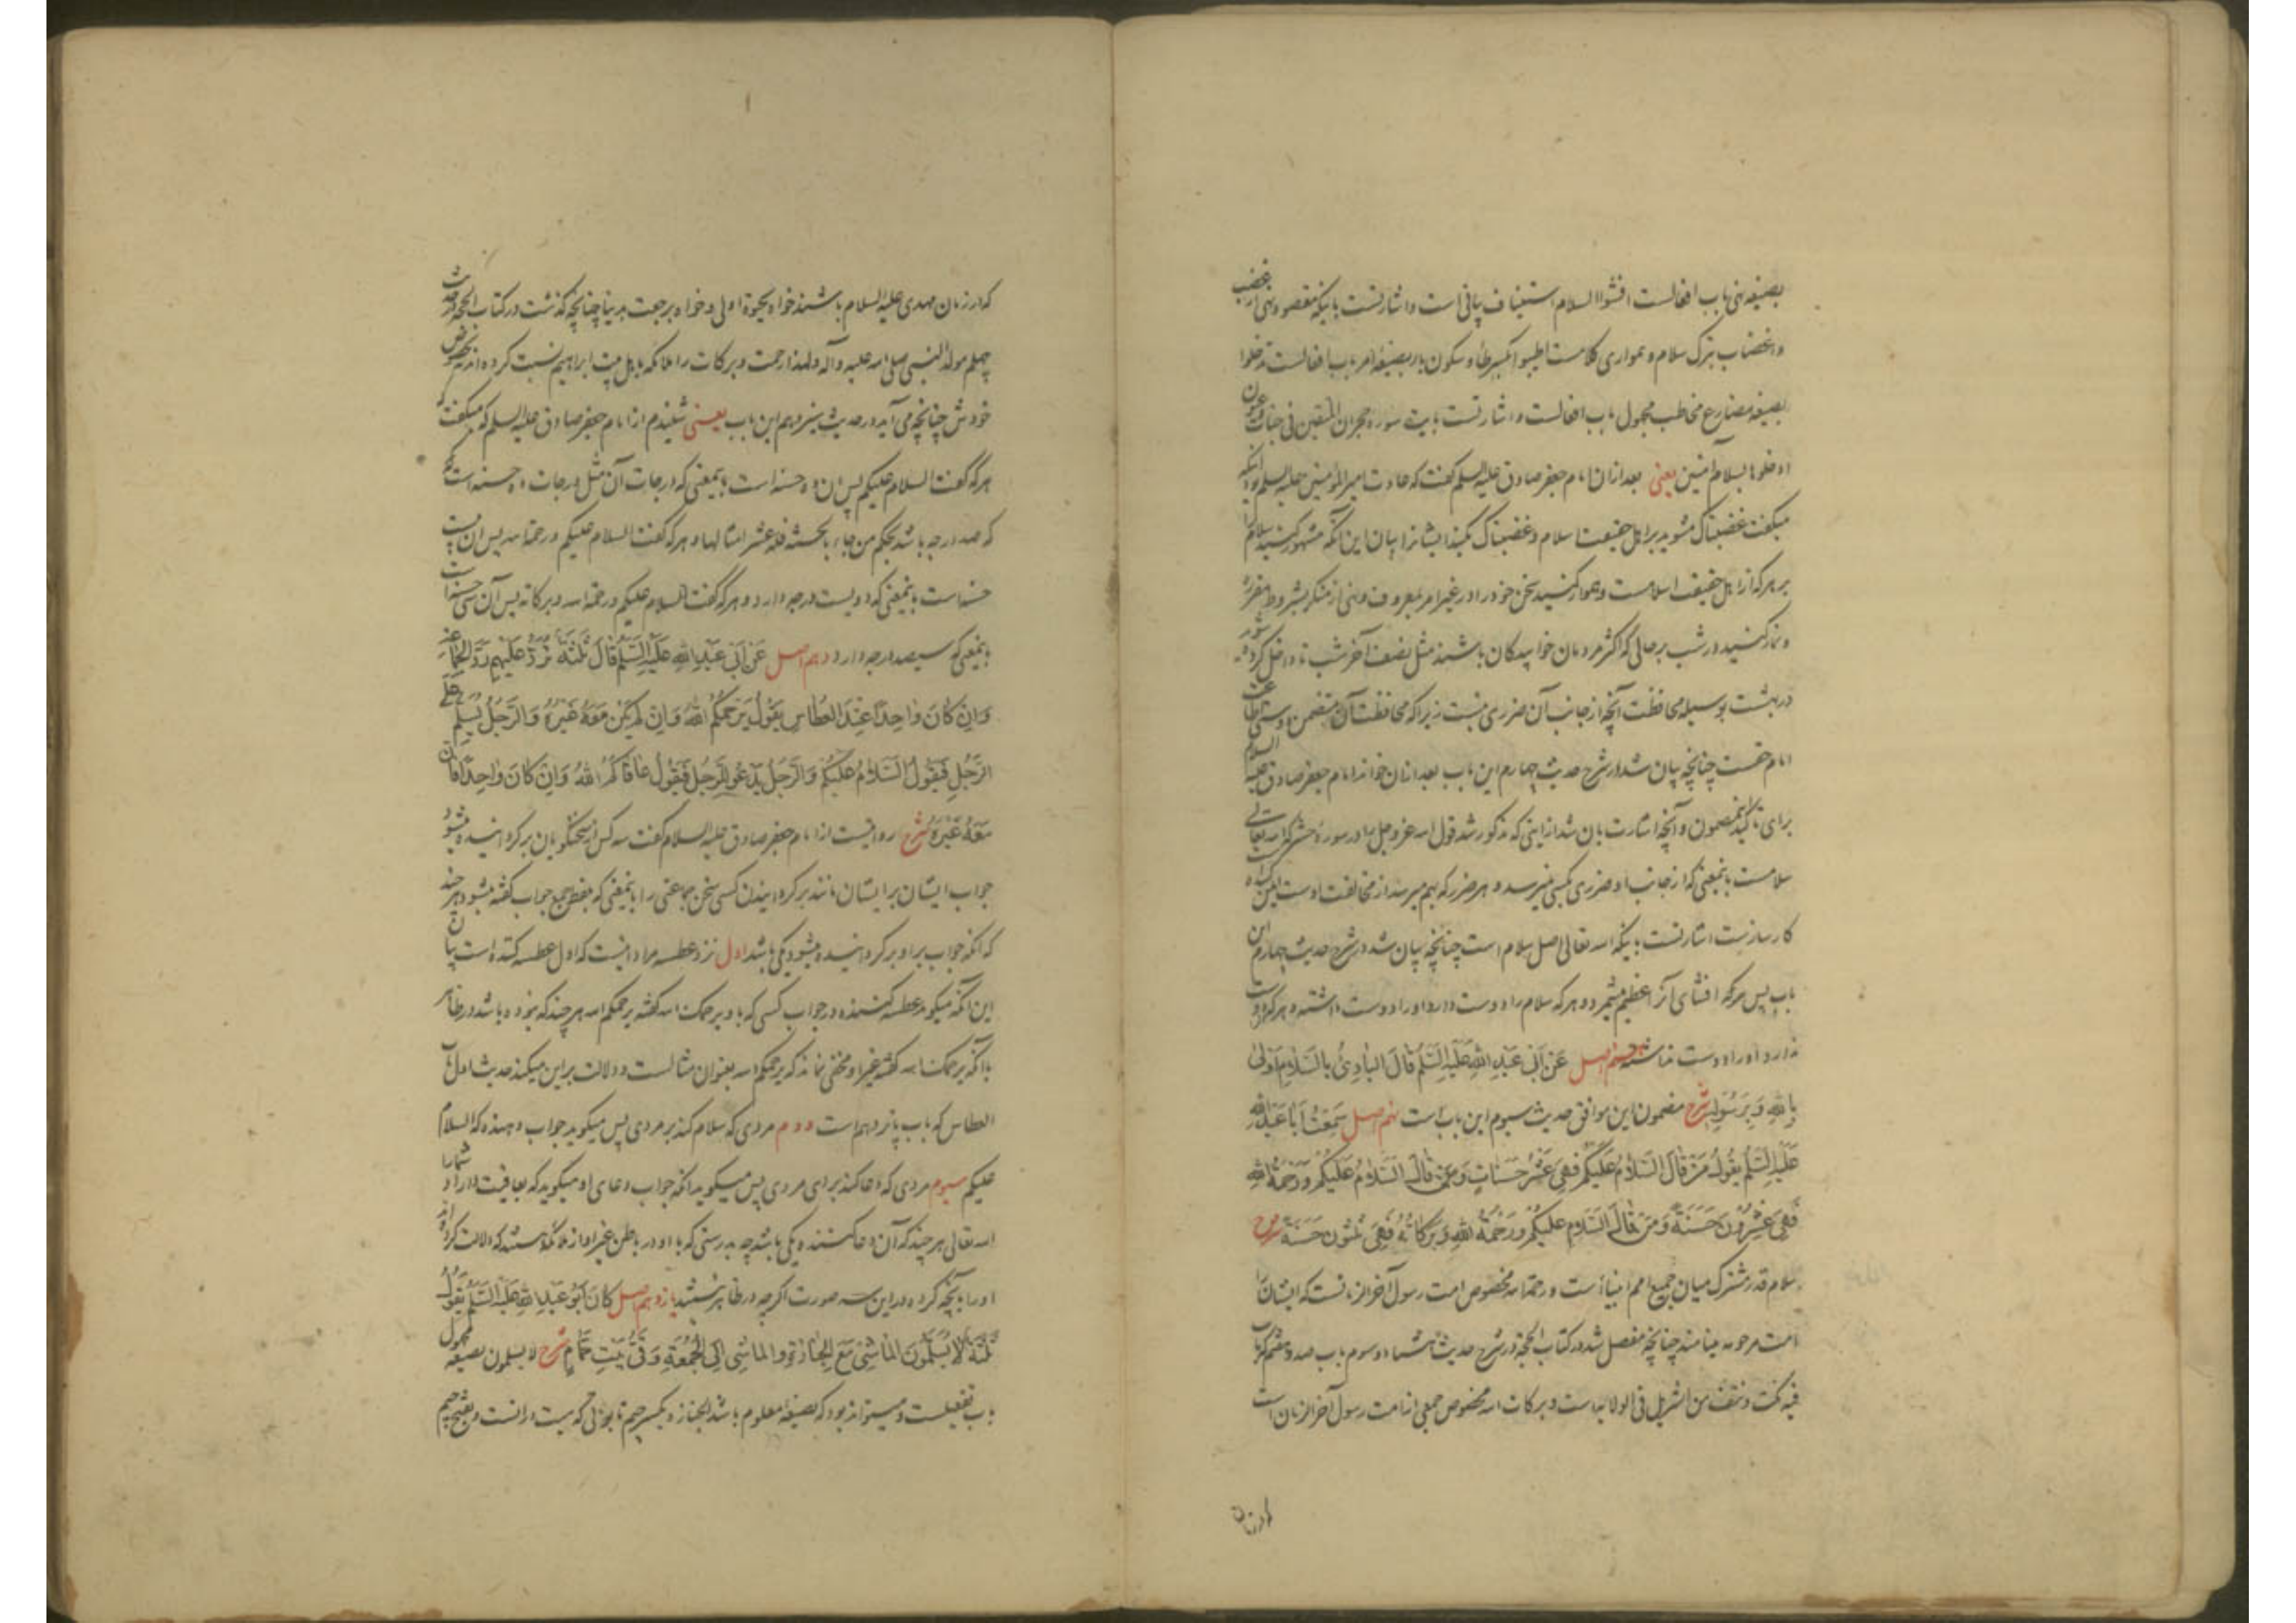 بصیغه نهی باب افعالست افشوا السلام استیناف بیانی است و اشارتست باینکه مقصود نهی از غضب
و اغضاب بترک سلام و همواری کلامست اطیبوا بکسر طا و سکون یا بصیغه امر باب افعالست تدخلوا
بصیغه مضارع مخاطب مجهول باب افعالست و اشارتست بآیت سوره حجر ان المتقین فی جنات و عیون
ادخلوها بسلام آمنین یعنی بعد ازان امام جعفر صادق علیه السلم گفت که عادت امیر المؤمنین علیه السلم
میگفت غضبناک مشوید بر اهل حقیقت اسلام و غضبناک مکنید ایشانرا بیان این آنکه مشهور کنید سلام را
بر هر که از اهل حقیقت اسلامست و هموار کنید سخن خود را در غیر امر بمعروف و نهی از منکر بشروط مقرره
و نماز کنید در شب بر حالی که اکثر مردمان خوابیدگان باشند مثل نصف آخر شب تا داخل کرده شوید
در بهشت بوسیله محافظت آنچه از جانب آن ضرری نیست زیرا که محافظت آن متضمن
امام حقست چنانچه بیان شد در شرح حدیث چهارم این باب بعد ازان خواند امام جعفر صادق علیه السلام
برای تاکید مضمون و آنچه اشارت بآن شد از اینی که مذکور شد قول اسه عز و جل را در سوره حشر که اسه تعالی
سلامست باینمعنی که از جانب او ضرری بکسی نمیرسد و هر ضرر که بهم میرسد از مخالفت اوست
کارسازست اشارتست باینکه اسه تعالی اصل سلام است چنانچه بیان شد در شرح حدیث چهارم این
باب پس هر که افشای آنرا عظیم میشمرد و هر که سلام را دوست دارد او را دوست داشته و هر که دوست
ندارد او را دوست نداشته هشتم اصل عَن اَبی عَبدِ اللهِ عَلَیهِ السَّلمُ قالَ البادِیُ بِالسَّلامِ اَولی
بِاللهِ وَ بِرَسُولِهِ شرح مضمون این موافق حدیث سیوم این باب است نهم اصل سَمِعتُ اَبا عَبدِ اللهِ
عَلَیهِ السَّلمُ یَقُولُ مَن قالَ السَّلامُ عَلَیکُم فَهِیَ عَشرُ حَسَناتٍ وَ مَن قالَ السَّلامُ عَلَیکُم وَ رَحمَةُ اللهِ
فَهِیَ عِشرُونَ حَسَنَةً وَ مَن قالَ السَّلامُ عَلَیکُم وَ رَحمَةُ اللهِ وَ بَرَکاتُهُ فَهِیَ ثَلثُونَ حَسَنَةً شرح
سلام قدر مشترک میان جمیع امم انبیا است و رحمة اسه مخصوص امت رسول آخر الزمانست که ایشانرا
امت مرحومه مینامند چنانچه مفصل شد در کتاب الحجة در شرح حدیث هشتاد و سوم باب صد و هفتم که باب
فیه نکت و نتف من التنزیل فی الولایه است و برکات اسه مخصوص جمعی از امت رسول آخر الزمان است
که در زمان
که در زمان مهدی علیه السلام باشند خواه بحیوة اولی و خواه برجعت بدنیا چنانچه گذشت در کتاب الحجه در حدیث
چهلم مولد النبی صلی اسه علیه و آله و لهذا رحمت و برکات را ملائکه باهل بیت ابراهیم نسبت کرده اند نه بخصوص
خودش چنانچه می آید در حدیث سیزدهم این باب یعنی شنیدم از امام جعفر صادق علیه السلم که میگفت که
هر که گفت السلام علیکم پس آن ده حسنه است باینمعنی که درجات آن مثل درجات ده حسنه است
که صد درجه باشد بحکم من جاء بالحسنة فله عشر امثالها و هر که گفت السلام علیکم و رحمة اسه پس آن بیست
حسنه است باینمعنی که دویست درجه دارد و هر که گفت السلام علیکم و رحمة اسه و برکاته پس آن سی حسنه است
باینمعنی که سیصد درجه دارد دهم اصل عَن اَبی عَبدِ اللهِ عَلَیهِ السَّلمُ قالَ ثَلثَةٌ تُرَدُّ عَلَیهِم رَدَّ الجَماعَةِ
وَ اِن کانَ واحِدًا عِندَ العُطاسِ یَقُولُ یَرحَمُکُمُ اللهُ وَ اِن لَم یَکُن مَعَهُ غَیرُهُ وَ الرَّجُلُ یُسَلِّمُ عَلَی
الرَّجُلِ فَیَقُولُ السَّلامُ عَلَیکُم وَ الرَّجُلُ یَدعُو لِلرَّجُلِ فَیَقُولُ عافاکُمُ اللهُ وَ اِن کانَ واحِدًا فَاِنَّ
مَعَهُ غَیرَهُ شرح روایتست از امام جعفر صادق علیه السلام گفت سه کس از سخنگویان برگردانیده میشود
جواب ایشان بر ایشان مانند برگردانیدن کسی سخن جماعتی را باینمعنی که بلفظ جمع جواب گفته میشود هر چند
که آنکه جواب بر او برگردانیده میشود یکی باشد اول نزد عطسه مراد اینست که اول عطسه کننده است بیان
این آنکه میگوید عطسه کننده در جواب کسی که باو یرحمک اسه گفته یرحمکم اسه هر چند که نبوده باشد در ظاهر
با آنکه یرحمک اسه گفته غیر او مخفی نماند که یرحمکم اسه بعنوان مثالست و دلالت بر این میکند حدیث اول باب
العطاس که باب پانزدهم است دوم مردی که سلام کند بر مردی پس میگوید جواب دهنده که السلام
علیکم سیوم مردی که دعا کند برای مردی پس میگوید آنکه جواب دعای او میگوید که بعافیت دارد شما را
اسه تعالی هر چند که آن دعا کننده یکی باشد چه بدرستی که با او در باطن غیر او از ملائکه هستند که دلالت کرده اند
او را بآنچه کرده در این سه صورت اگر چه در ظاهر نیستند یازدهم اصل کانَ اَبُو عَبدِ اللهِ عَلَیهِ السَّلمُ یَقُولُ
ثَلثَةٌ لا یُسَلَّمُونَ الماشِی مَعَ الجَنازَةِ وَ الماشِی اِلَی الجُمُعَةِ وَ فی بَیتِ حَمّامٍ شرح لا یسلمون بصیغه مجهول
باب تفعیلست و میتواند بود که بصیغه معلوم باشد الجنازه بکسر جیم تابوتی که میت در انست و بفتح جیم